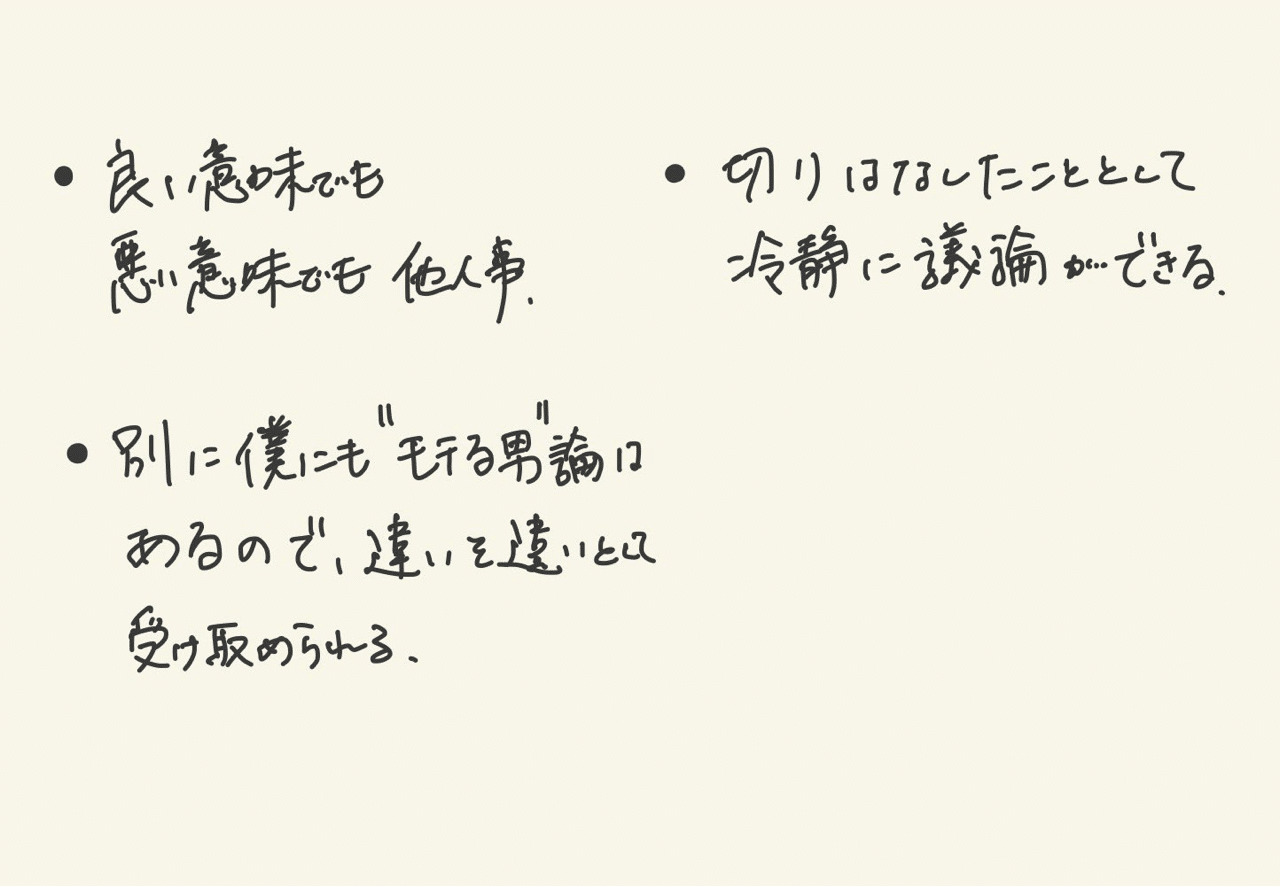 • 良い意味でも
悪い意味でも 他人事.
• 切りはなしたこととして
冷静に議論ができる.
• 別に僕にも"モテる男"論は
あるので、違いを違いとして
受け取められる.